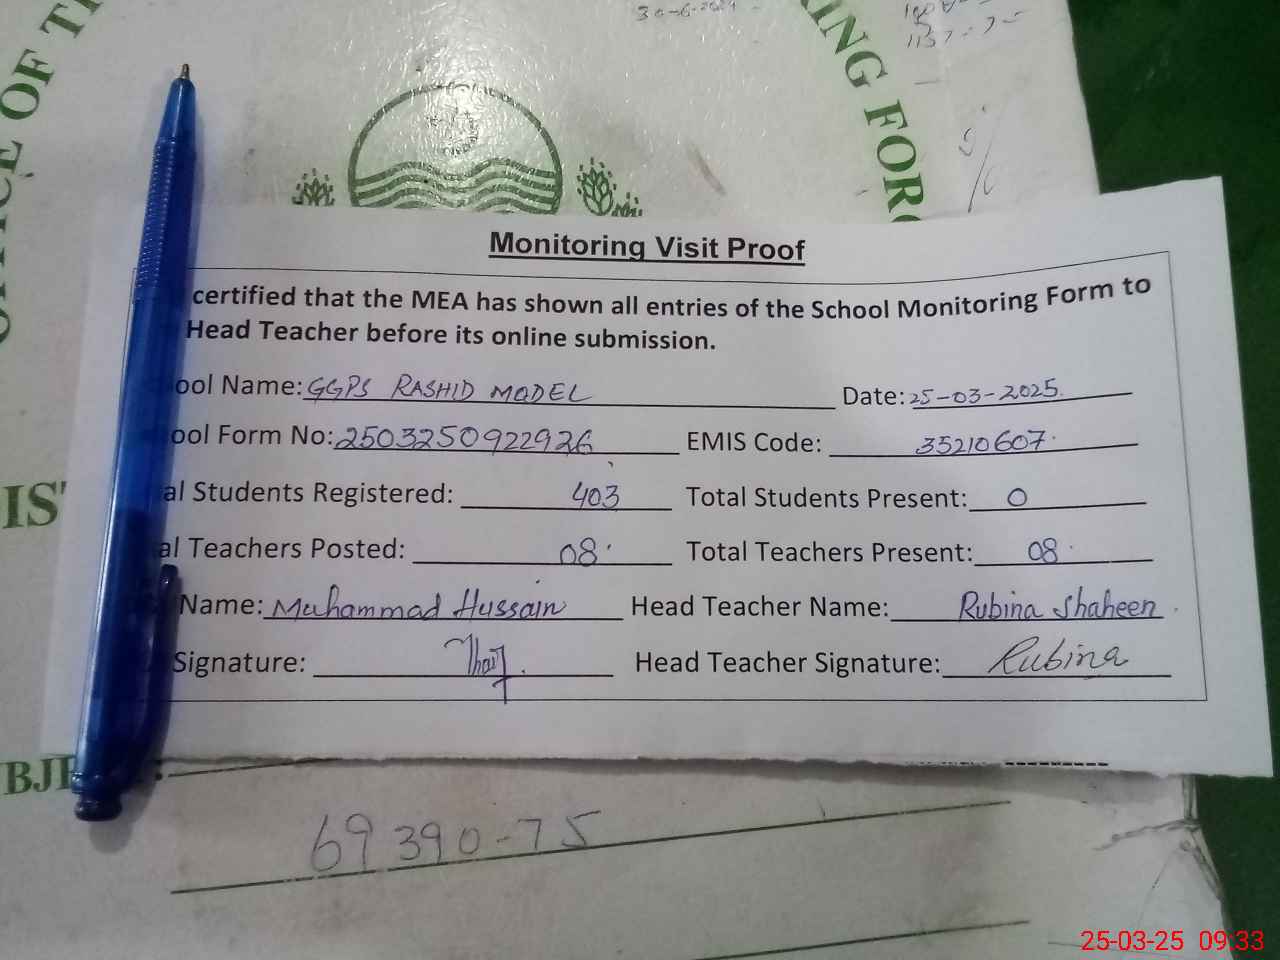 30-6-2024
OFFICE OF T
RING FOR
1157-75
Monitoring Visit Proof
certified that the MEA has shown all entries of the School Monitoring Form to
Head Teacher before its online submission.
ool Name: GGPS RASHID MODEL Date: 25-03-2025
ool Form No: 2503250922926 EMIS Code: 35210607
al Students Registered: 403 Total Students Present: 0
al Teachers Posted: 08 Total Teachers Present: 08
Name: Muhammad Hussain Head Teacher Name: Rubina Shaheen
Signature: Head Teacher Signature: Rubina
IST
BJE :
69390-75
25-03-25 09:33